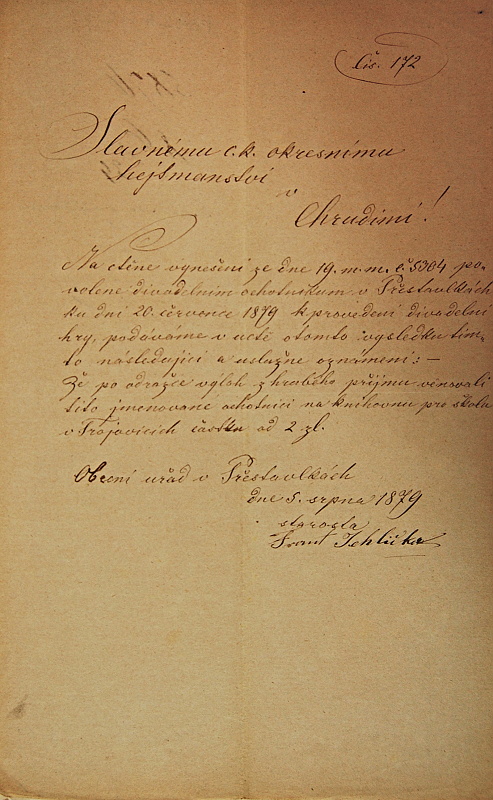 Čís. 172
Slavnému c. k. okresnímu
hejtmanství
v
Chrudimi!
Na ctěné vynešení ze dne 19. m. m. č 5304 po-
volené divadelním ochotníkum v Přestavlkách
ku dni 20. července 1879 k provedení divadelní
hry, podáváme v úctě o tomto výsledku tím-
to následující a uslužné oznámení: —
že po odražce výloh z hrubého příjmu věnovali
tito jmenované ochotníci na knihovnu pro školu
v Trojovicích částku od 2 zl.
Obecní uřad v Přestavlkách
dne 5. srpna 1879
starosta
Frant Jehlička